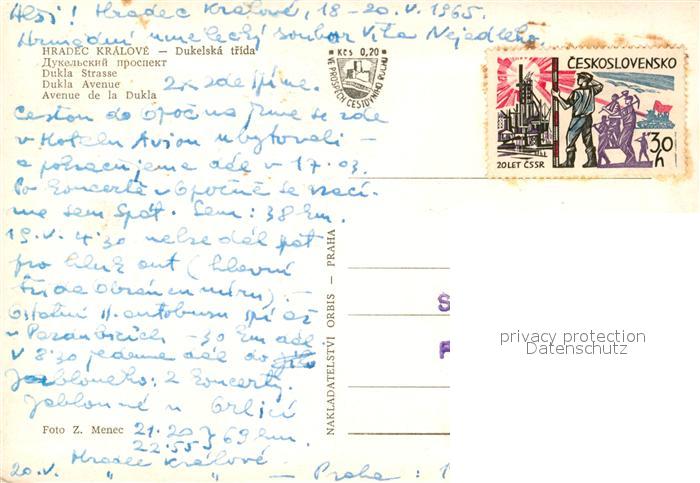 Hradec Králové, 18-20.V.1965.
Armádní umělecký soubor Víta Nejedlého,
HRADEC KRÁLOVÉ — Dukelská třída
Дукельский проспект
Dukla Strasse
Dukla Avenue
Avenue de la Dukla
2x zde spíme.
Cestou do Opočna jsme se zde
v Hotelu Avion ubytovali —
a pokračujeme dál v 17.03.
Po koncertě v Opočně se vrací-
me sem spát. Sem: 38 km.
19.V. 4'30 nelze dál spát
pro hluk aut (hlavní
třída Obránců míru). —
Ostatní II. autobusu spí až
v Pardubicích - 30 km dál.
V 8'30 jedeme dál do
Jablonného: 2 koncerty.
Jablonné n Orlicí
Foto Z. Menec
21.20 } 69 km.
22.55
Hradec Králové
20.V. " " — Praha: 1
Kčs 0,20
VE PROSPĚCH CESTOVNÍHO RUCHU
ČESKOSLOVENSKO
20 LET ČSSR
30 h
NAKLADATELSTVÍ ORBIS — PRAHA
S
F
privacy protection
Datenschutz